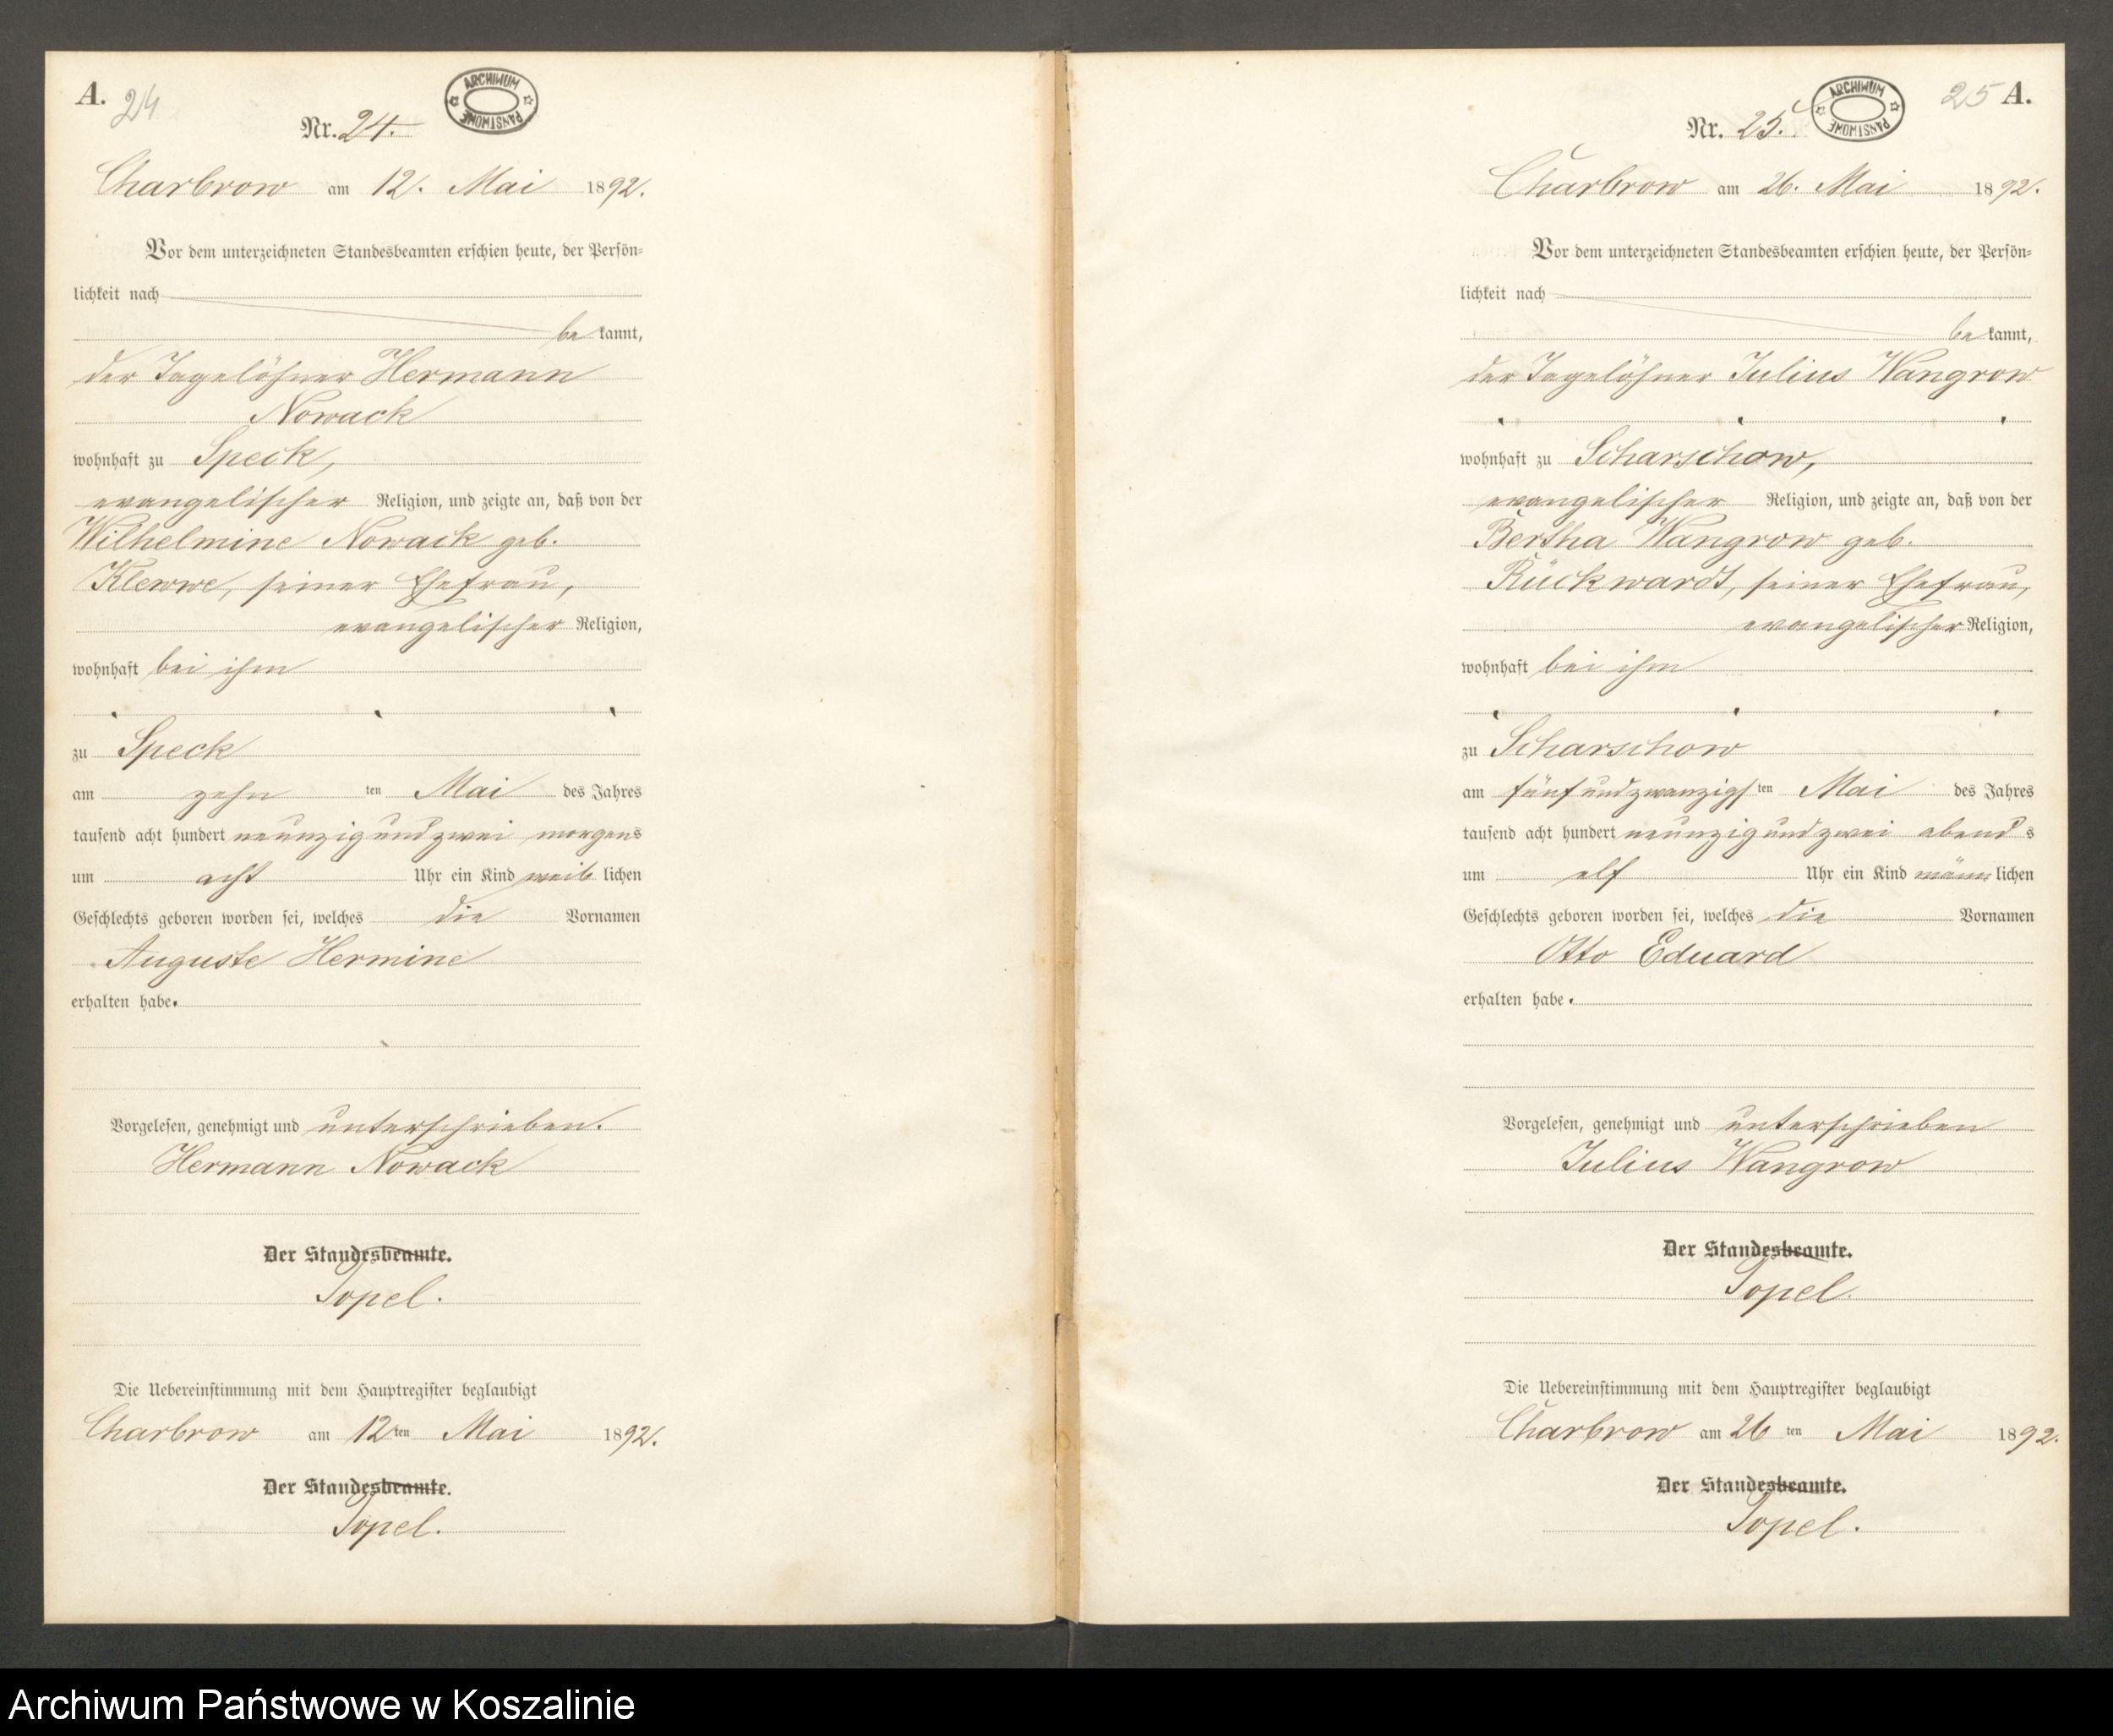 A. 24
ARCHIWUM PAŃSTWOWE
Nr. 24.
Charbrow am 12. Mai 1892.
Vor dem unterzeichneten Standesbeamten erschien heute, der Persön-
lichkeit nach
be kannt,
der Tagelöhner Hermann
Nowack
wohnhaft zu Speck,
evangelischer Religion, und zeigte an, daß von der
Wilhelmine Nowack geb.
Klewwe, seiner Ehefrau,
evangelischer Religion,
wohnhaft bei ihm
zu Speck
am zehn ten Mai des Jahres
tausend acht hundert neunzig und zwei morgens
um acht Uhr ein Kind weib lichen
Geschlechts geboren worden sei, welches die Vornamen
Auguste Hermine
erhalten habe.
Vorgelesen, genehmigt und unterschrieben.
Hermann Nowack
Der Standesbeamte.
Topel.
Die Uebereinstimmung mit dem Hauptregister beglaubigt
Charbrow am 12 ten Mai 1892.
Der Standesbeamte.
Topel.
25 A.
ARCHIWUM PAŃSTWOWE
Nr. 25.
Charbrow am 26. Mai 1892.
Vor dem unterzeichneten Standesbeamten erschien heute, der Persön-
lichkeit nach
be kannt,
der Tagelöhner Julius Wangrow
wohnhaft zu Scharschow,
evangelischer Religion, und zeigte an, daß von der
Bertha Wangrow geb.
Rückwardt, seiner Ehefrau,
evangelischer Religion,
wohnhaft bei ihm
zu Scharschow
am fünf und zwanzigs ten Mai des Jahres
tausend acht hundert neunzig und zwei abend s
um elf Uhr ein Kind männ lichen
Geschlechts geboren worden sei, welches die Vornamen
Otto Eduard
erhalten habe.
Vorgelesen, genehmigt und unterschrieben
Julius Wangrow
Der Standesbeamte.
Topel.
Die Uebereinstimmung mit dem Hauptregister beglaubigt
Charbrow am 26 ten Mai 1892.
Der Standesbeamte.
Topel.
Archiwum Państwowe w Koszalinie